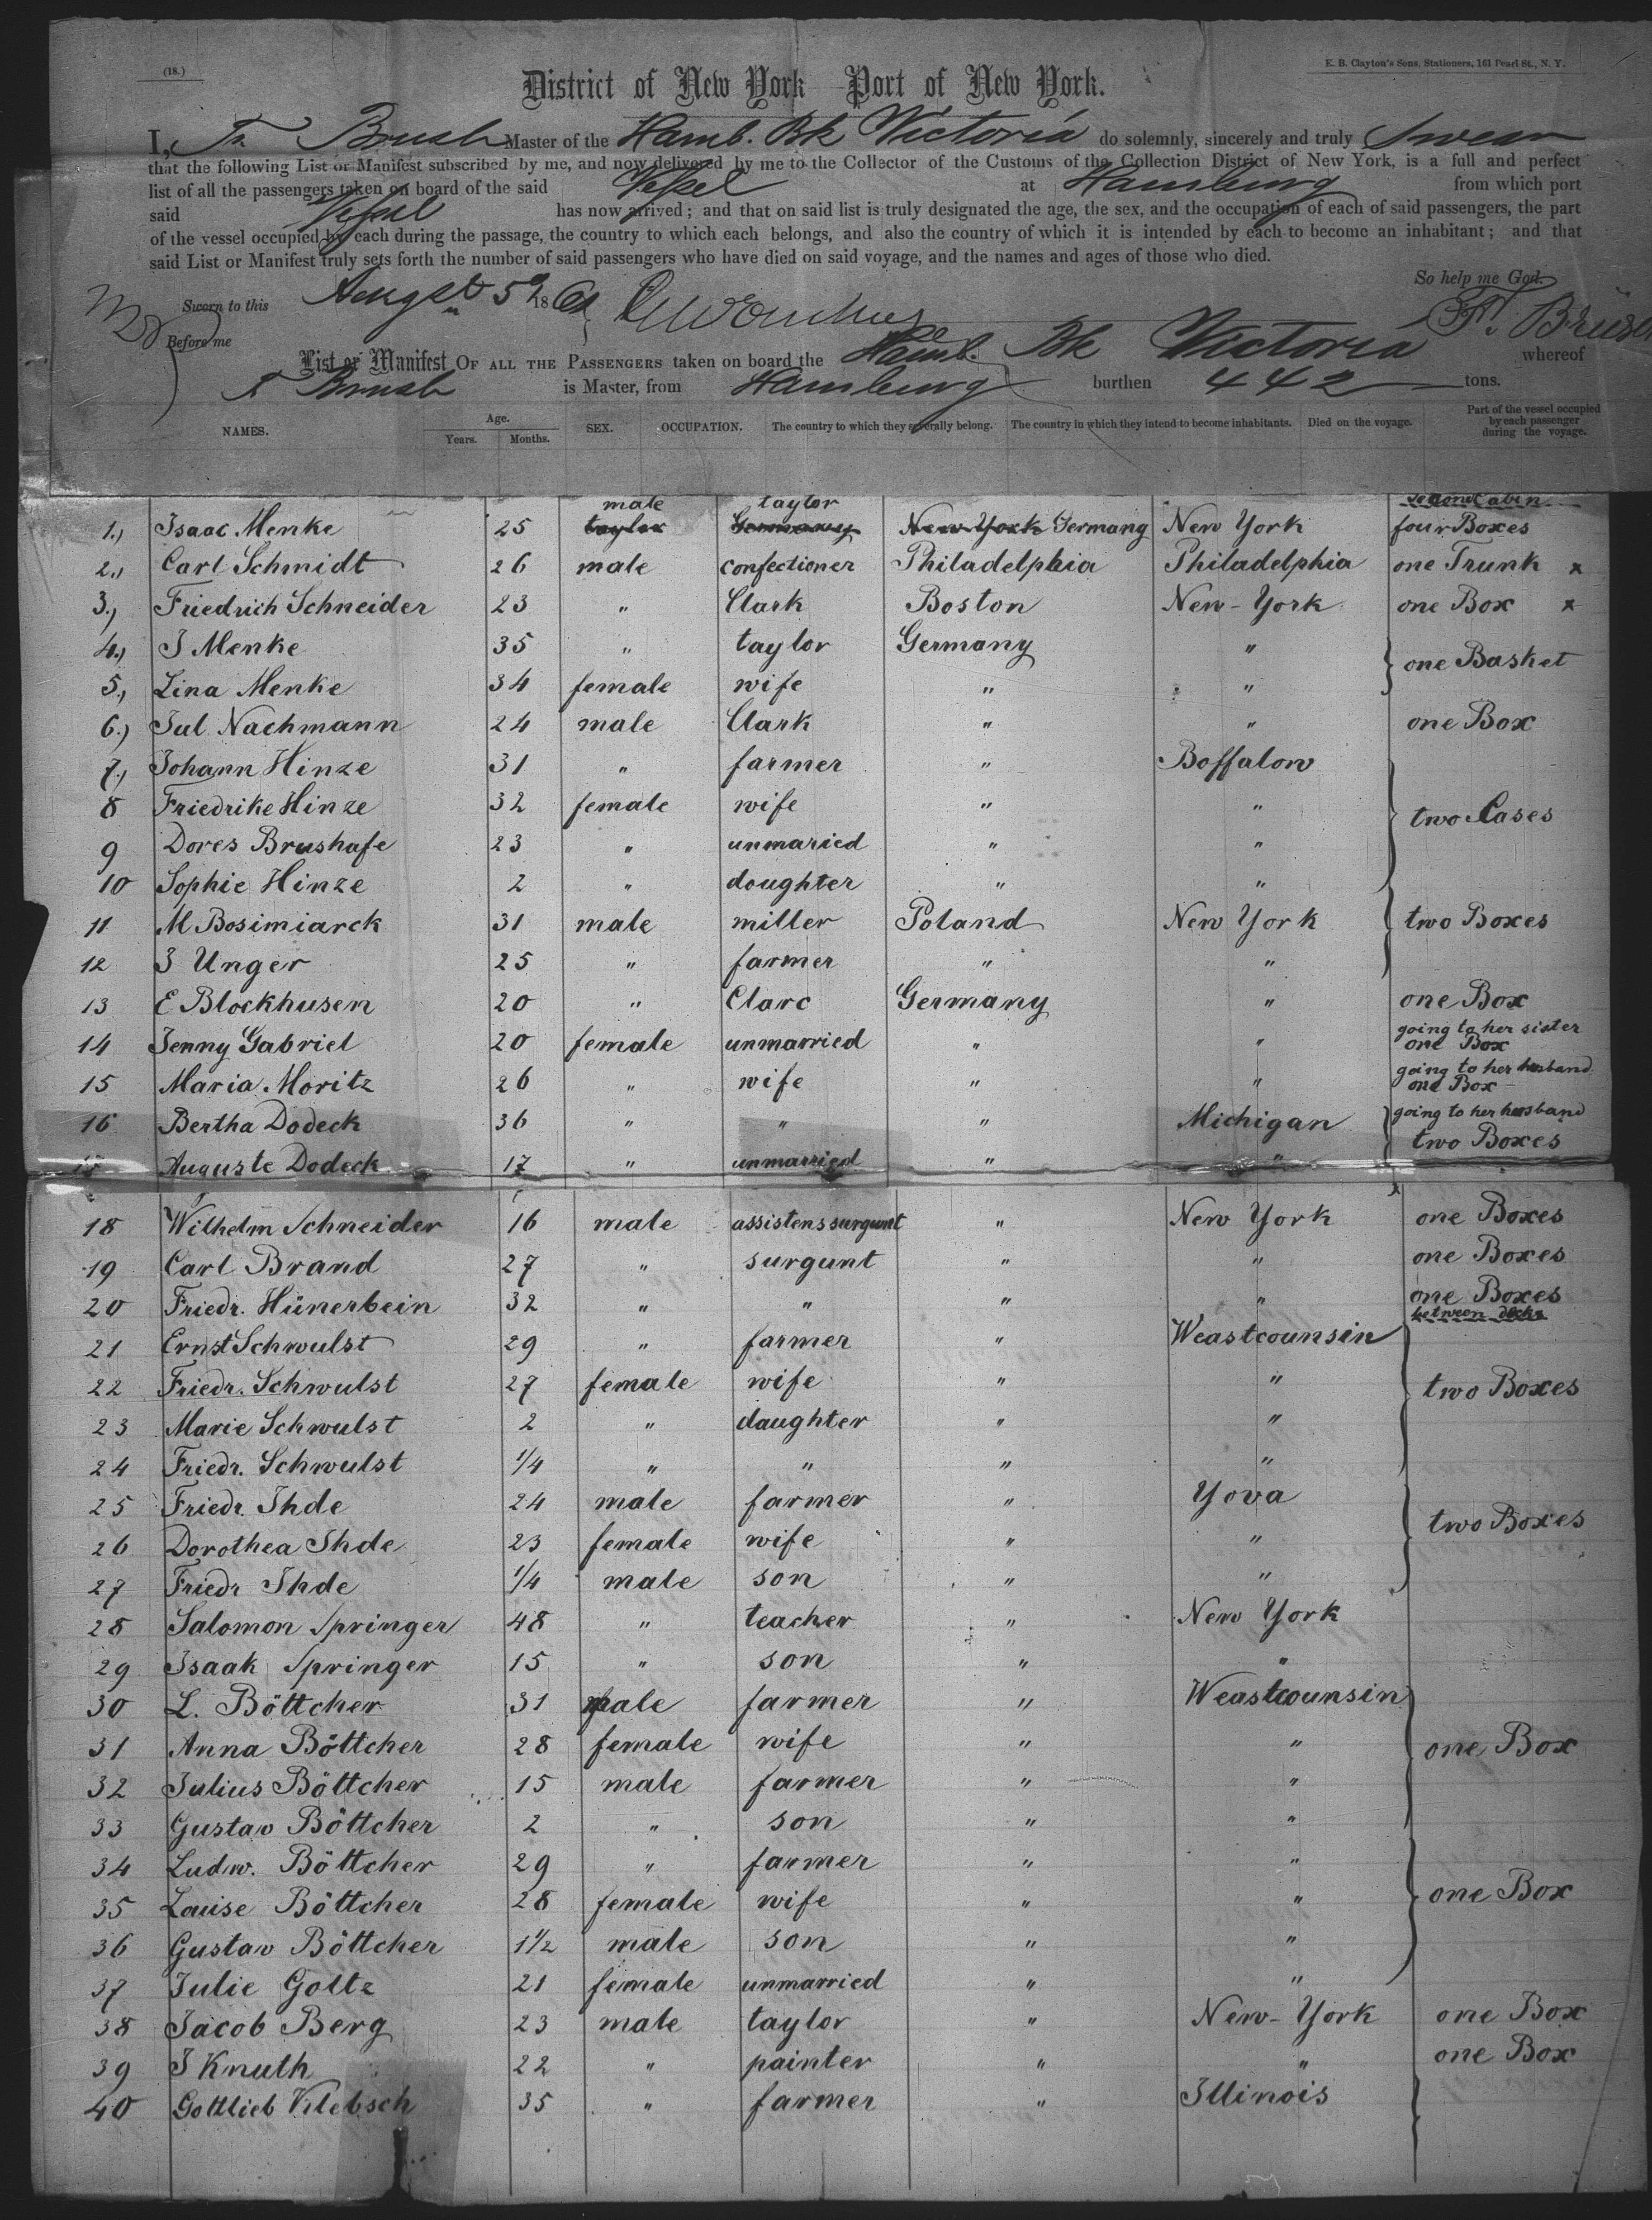 (18.)
E. B. Clayton's Sons, Stationers, 161 Pearl St., N. Y.
District of New York — Port of New York.
I, Brush Master of the Hamb. Bk Victoria do solemnly, sincerely and truly Swear
that the following List or Manifest subscribed by me, and now delivered by me to the Collector of the Customs of the Collection District of New York, is a full and perfect
list of all the passengers taken on board of the said Vessel at Hamburg from which port
said Vessel has now arrived; and that on said list is truly designated the age, the sex, and the occupation of each of said passengers, the part
of the vessel occupied by each during the passage, the country to which each belongs, and also the country of which it is intended by each to become an inhabitant; and that
said List or Manifest truly sets forth the number of said passengers who have died on said voyage, and the names and ages of those who died.
So help me God.
Sworn to this August 5 1861
Before me
List or Manifest OF ALL THE PASSENGERS taken on board the Hamb. Bk Victoria whereof
Brush is Master, from Hamburg burthen 442 tons.
NAMES. Age. Years. Months. SEX. OCCUPATION. The country to which they severally belong. The country in which they intend to become inhabitants. Died on the voyage. Part of the vessel occupied by each passenger during the voyage.
male taylor second Cabin
1.) Isaac Menke 25 taylor Germany New York Germany New York four Boxes
2.) Carl Schmidt 26 male confectioner Philadelphia Philadelphia one Trunk x
3.) Friedrich Schneider 23 " Clark Boston New-York one Box x
4.) J Menke 35 " taylor Germany " one Basket
5.) Lina Menke 34 female wife " "
6.) Jul Nachmann 24 male Clark " " one Box
7.) Johann Hinze 31 " farmer " Boffalow
8 Friedrike Hinze 32 female wife " " two Cases
9 Dores Brushafe 23 " unmaried " "
10 Sophie Hinze 2 " doughter " "
11 M Bosimiarck 31 male miller Poland New York two Boxes
12 J Unger 25 " farmer " "
13 E Blockhusen 20 " Clarc Germany " one Box
14 Jenny Gabriel 20 female unmarried " " going to her sister one Box
15 Maria Moritz 26 " wife " " going to her husband one Box
16 Bertha Dodeck 36 " " " Michigan going to her husband
17 Auguste Dodeck 17 " unmarried " " two Boxes
18 Wilhelm Schneider 16 male assistens surgunt " New York one Boxes
19 Carl Brand 27 " surgunt " " one Boxes
20 Friedr. Hünerbein 32 " " " " one Boxes
between decks
21 Ernst Schwulst 29 " farmer " Weastcounsin
22 Friedr. Schwulst 27 female wife " " two Boxes
23 Marie Schwulst 2 " daughter " "
24 Friedr. Schwulst 1/4 " " " "
25 Friedr. Ihde 24 male farmer " Yova
26 Dorothea Ihde 23 female wife " " two Boxes
27 Friedr Ihde 1/4 male son " "
28 Salomon Springer 48 " teacher " New York
29 Isaak Springer 15 " son " "
30 L. Böttcher 31 male farmer " Weastcounsin
31 Anna Böttcher 28 female wife " " one Box
32 Julius Böttcher 15 male farmer " "
33 Gustav Böttcher 2 " son " "
34 Ludw. Böttcher 29 " farmer " "
35 Louise Böttcher 28 female wife " " one Box
36 Gustav Böttcher 1 1/2 male son " "
37 Julie Goltz 21 female unmarried " "
38 Jacob Berg 23 male taylor " New-York one Box
39 J Knuth 22 " painter " " one Box
40 Gottlieb Klebsch 35 " farmer " Illinois